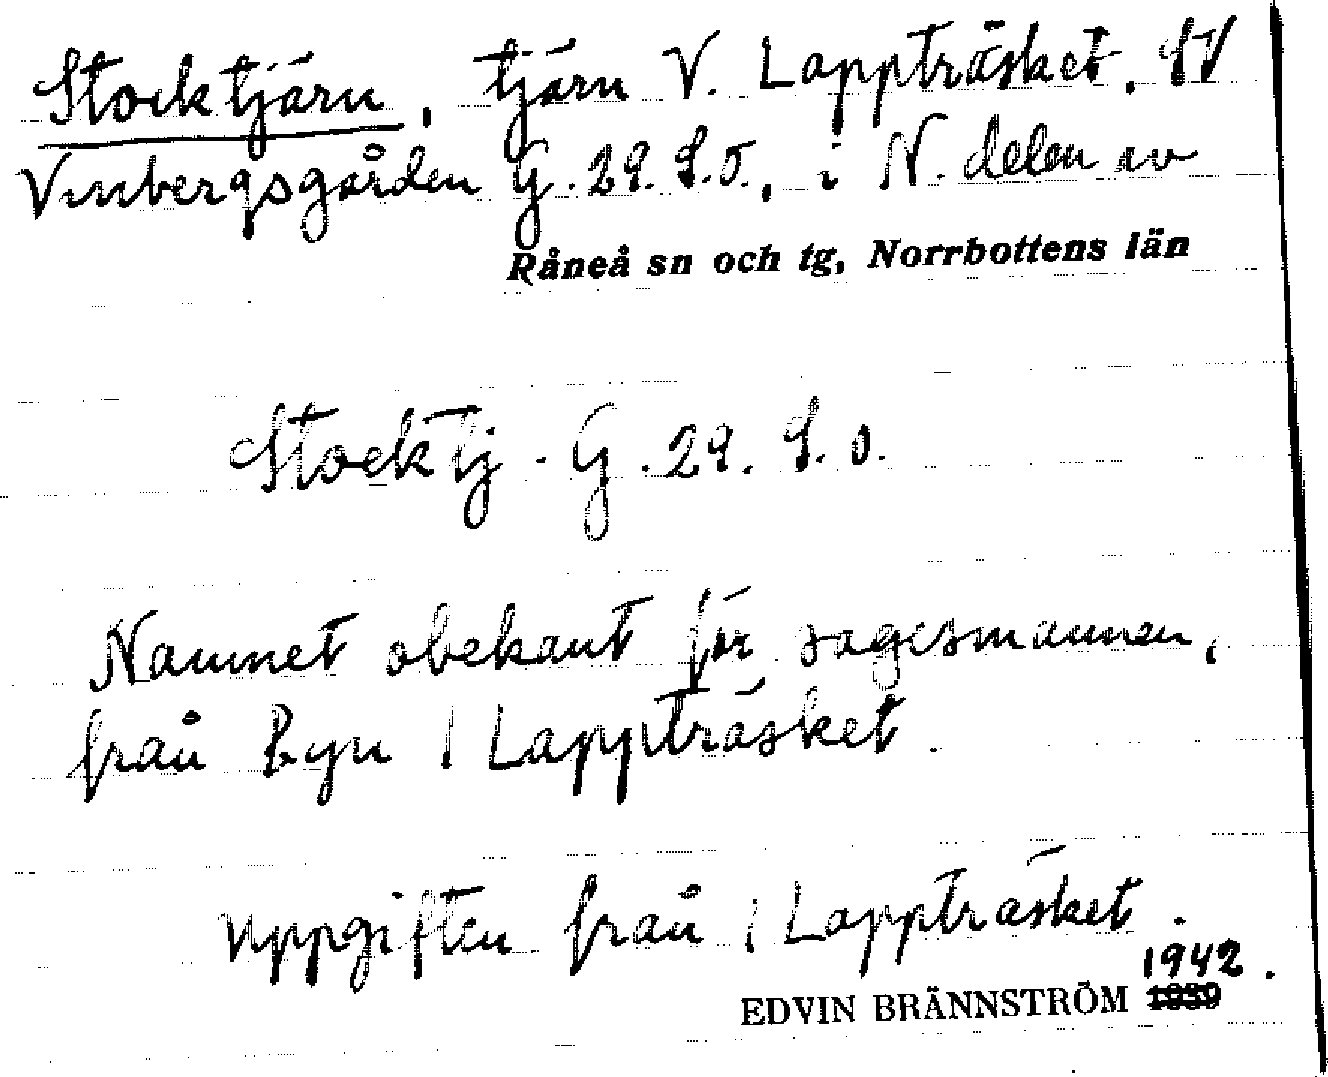 Stocktjärn, tjärn V. Lappträsket, SV
Vinbergsgården G. 29. S.O., i N. delen av
Råneå sn och tg, Norrbottens län
Stocktj. G. 29. S. O.
Namnet obekant för sagesmannen,
från Byn 1 Lappträsket.
uppgiften från 1 Lappträsket.
1942.
EDVIN BRÄNNSTRÖM 1939